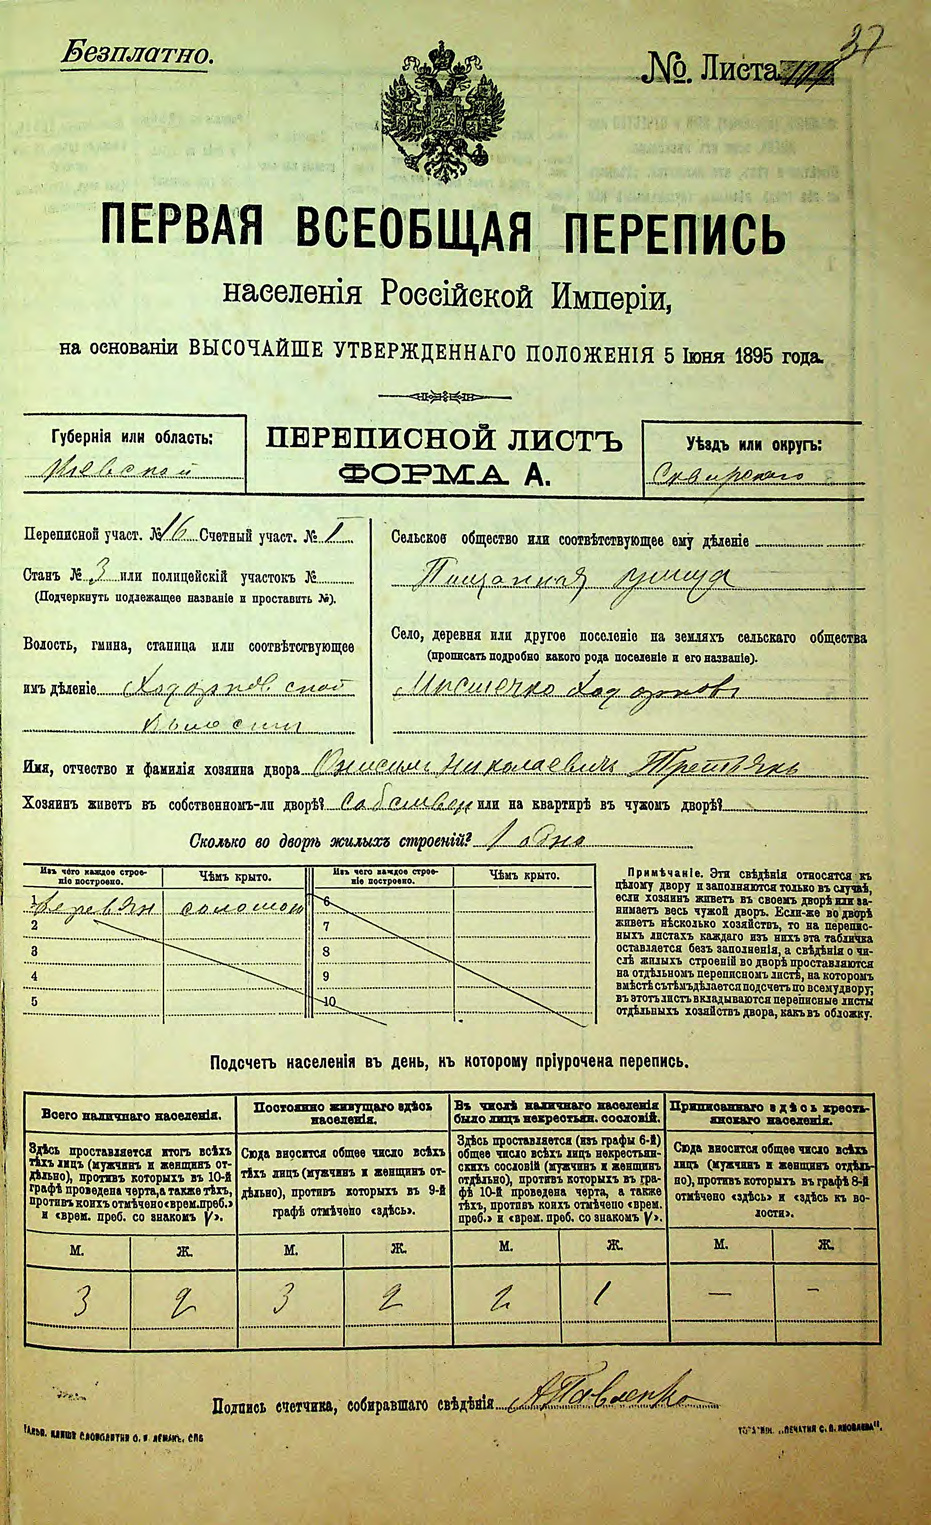 37
Безплатно.
№. Листа
ПЕРВАЯ ВСЕОБЩАЯ ПЕРЕПИСЬ
населенія Россійской Имперіи,
на основаніи ВЫСОЧАЙШЕ УТВЕРЖДЕННАГО ПОЛОЖЕНІЯ 5 Іюня 1895 года.
Губернія или область:
Кіевской
ПЕРЕПИСНОЙ ЛИСТЪ
ФОРМА А.
Уѣздъ или округъ:
Сквирскаго
Переписной участ. № 16 Счетный участ. № I
Станъ № 3 или полицейскій участокъ №
(Подчеркнуть подлежащее названіе и проставить №).
Волость, гмина, станица или соотвѣтствующее
имъ дѣленіе Ходорковской
волости
Сельское общество или соотвѣтствующее ему дѣленіе
Пищанная улица
Село, деревня или другое поселеніе на земляхъ сельскаго общества
(прописать подробно какого рода поселеніе и его названіе).
Мѣстечко Ходорковъ
Имя, отчество и фамилія хозяина двора Онисим Николаевичъ Третьякъ
Хозяинъ живетъ въ собственномъ-ли дворѣ? собствен или на квартирѣ въ чужомъ дворѣ?
Сколько во дворѣ жилыхъ строеній? 1 одно
Изъ чего каждое строеніе построено. Чѣмъ крыто. Изъ чего каждое строеніе построено. Чѣмъ крыто.
1 деревян соломою 6
2 7
3 8
4 9
5 10
Примѣчаніе. Эти свѣдѣнія относятся къ
цѣлому двору и заполняются только въ случаѣ,
если хозяинъ живетъ въ своемъ дворѣ или за-
нимаетъ весь чужой дворъ. Если-же во дворѣ
живетъ нѣсколько хозяйствъ, то на перепис-
ныхъ листахъ каждаго изъ нихъ эта табличка
оставляется безъ заполненія, а свѣдѣнія о чи-
слѣ жилыхъ строеній во дворѣ проставляются
на отдѣльномъ переписномъ листѣ, на которомъ
вмѣстѣ съ тѣмъ дѣлается подсчетъ по всему двору;
въ этотъ листъ вкладываются переписные листы
отдѣльныхъ хозяйствъ двора, какъ въ обложку.
Подсчетъ населенія въ день, къ которому пріурочена перепись.
Всего наличнаго населенія.
Здѣсь проставляется итогъ всѣхъ
тѣхъ лицъ (мужчинъ и женщинъ от-
дѣльно), противъ которыхъ въ 10-й
графѣ проведена черта, а также тѣхъ,
противъ коихъ отмѣчено «врем. преб.»
и «врем. преб. со знакомъ V».
Постоянно живущаго здѣсь
населенія.
Сюда вносится общее число всѣхъ
тѣхъ лицъ (мужчинъ и женщинъ от-
дѣльно), противъ которыхъ въ 9-й
графѣ отмѣчено «здѣсь».
Въ числѣ наличнаго населенія
было лицъ некрестьян. сословій.
Здѣсь проставляется (изъ графы 6-й)
общее число всѣхъ лицъ некрестьян-
скихъ сословій (мужчинъ и женщинъ
отдѣльно), противъ которыхъ въ гра-
фѣ 10-й проведена черта, а также
тѣхъ, противъ коихъ отмѣчено «врем.
преб.» и «врем. преб. со знакомъ V».
Приписаннаго здѣсь кресть-
янскаго населенія.
Сюда вносится общее число всѣхъ
лицъ (мужчинъ и женщинъ отдѣль-
но), противъ которыхъ въ графѣ 8-й
отмѣчено «здѣсь» и «здѣсь къ во-
лости».
М. Ж. М. Ж. М. Ж. М. Ж.
3 2 3 2 2 1 — –
Подпись счетчика, собиравшаго свѣдѣнія А Павленко